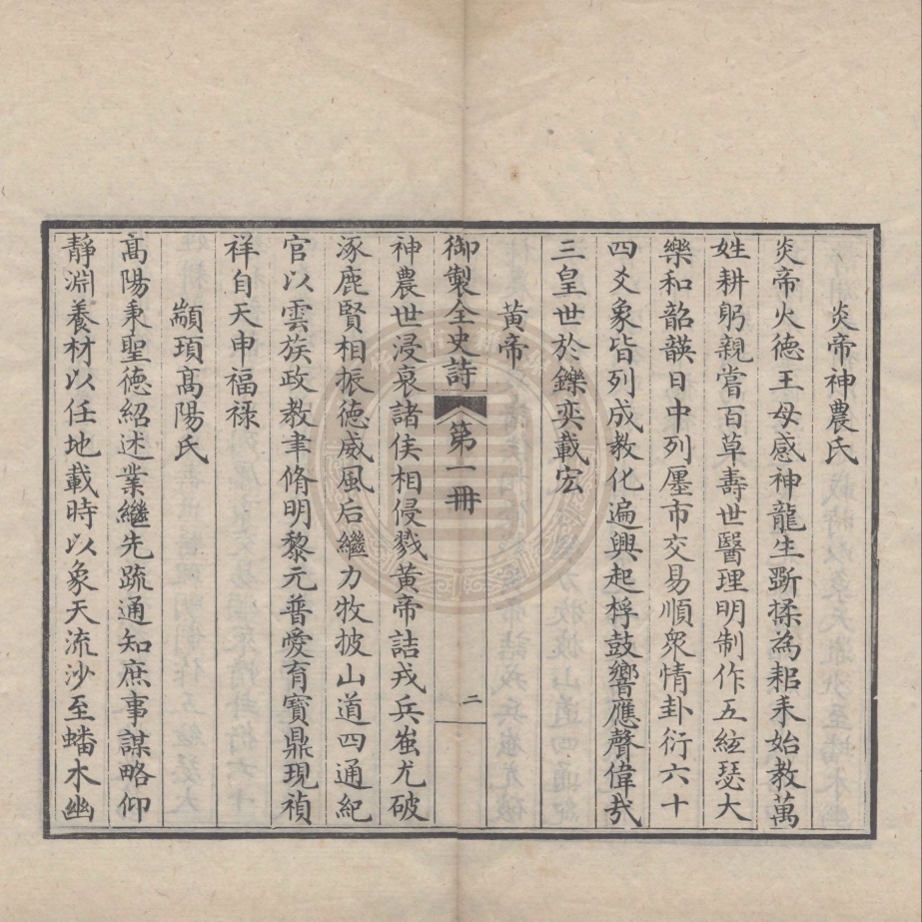 炎帝神農氏
炎帝火德王母感神龍生斲揉為耜耒始教萬
姓耕躬親嘗百草壽世醫理明制作五絃瑟大
樂和韶韺日中列廛市交易順衆情卦衍六十
四爻象皆列成教化遍興起桴鼓響應聲偉㢤
三皇世於鑠奕載宏
黃帝
御製全史詩 第一冊 二
神農世浸衰諸侯相侵戮黃帝詰戎兵蚩尤破
涿鹿賢相振德威風后繼力牧披山道四通紀
官以雲族政教聿脩明黎元普愛育寶鼎現禎
祥自天申福祿
顓頊髙陽氏
髙陽秉聖德紹述業繼先疏通知庶事謀略仰
靜淵養材以任地載時以象天流沙至蟠木幽